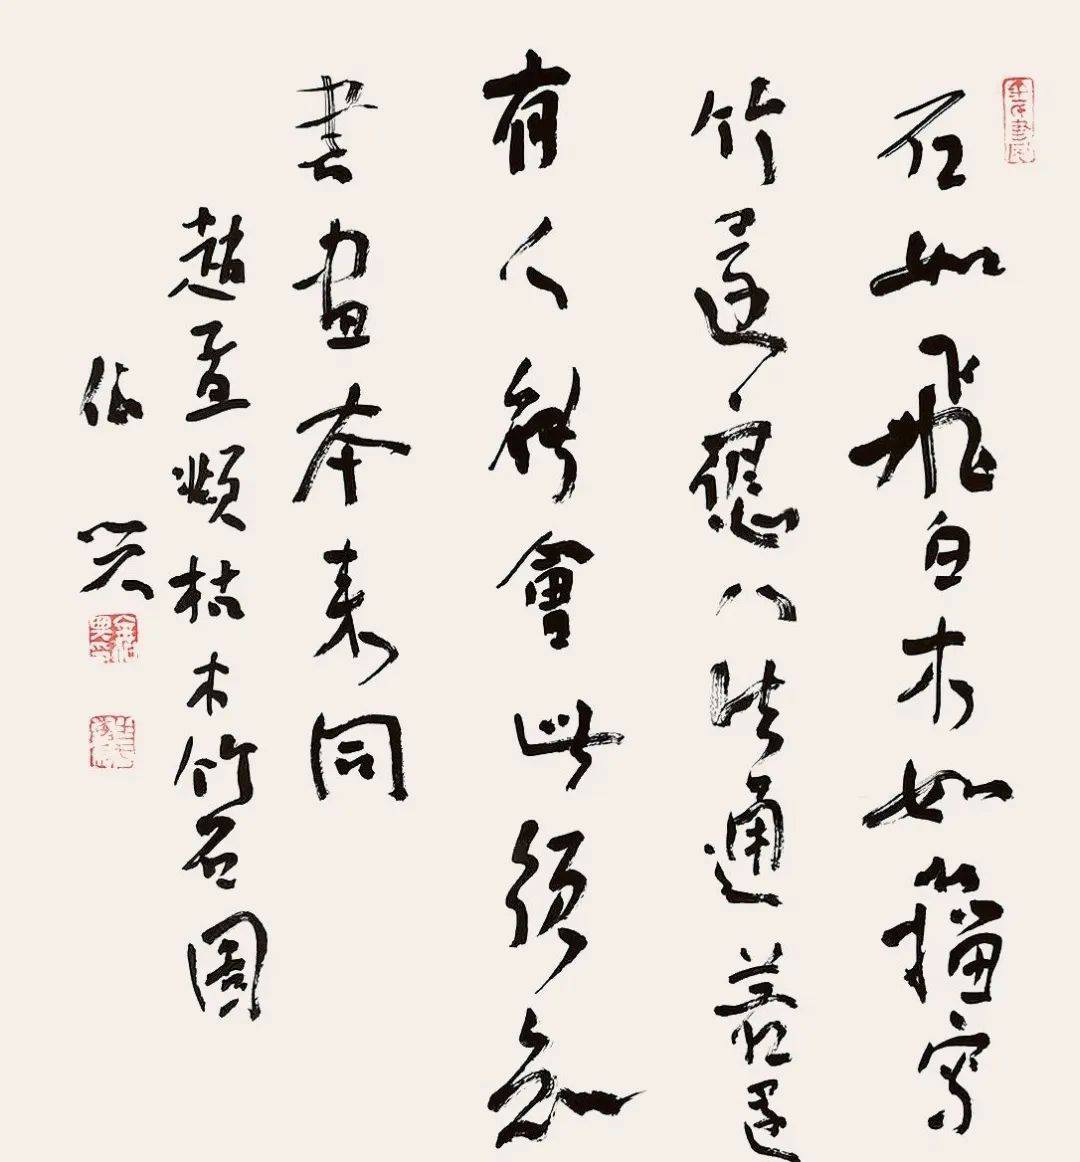 石如飛白木如籀寫
竹還應八法通若還
有人能會此須知
書畫本来同
趙孟頫枯木竹石圖
伯兴